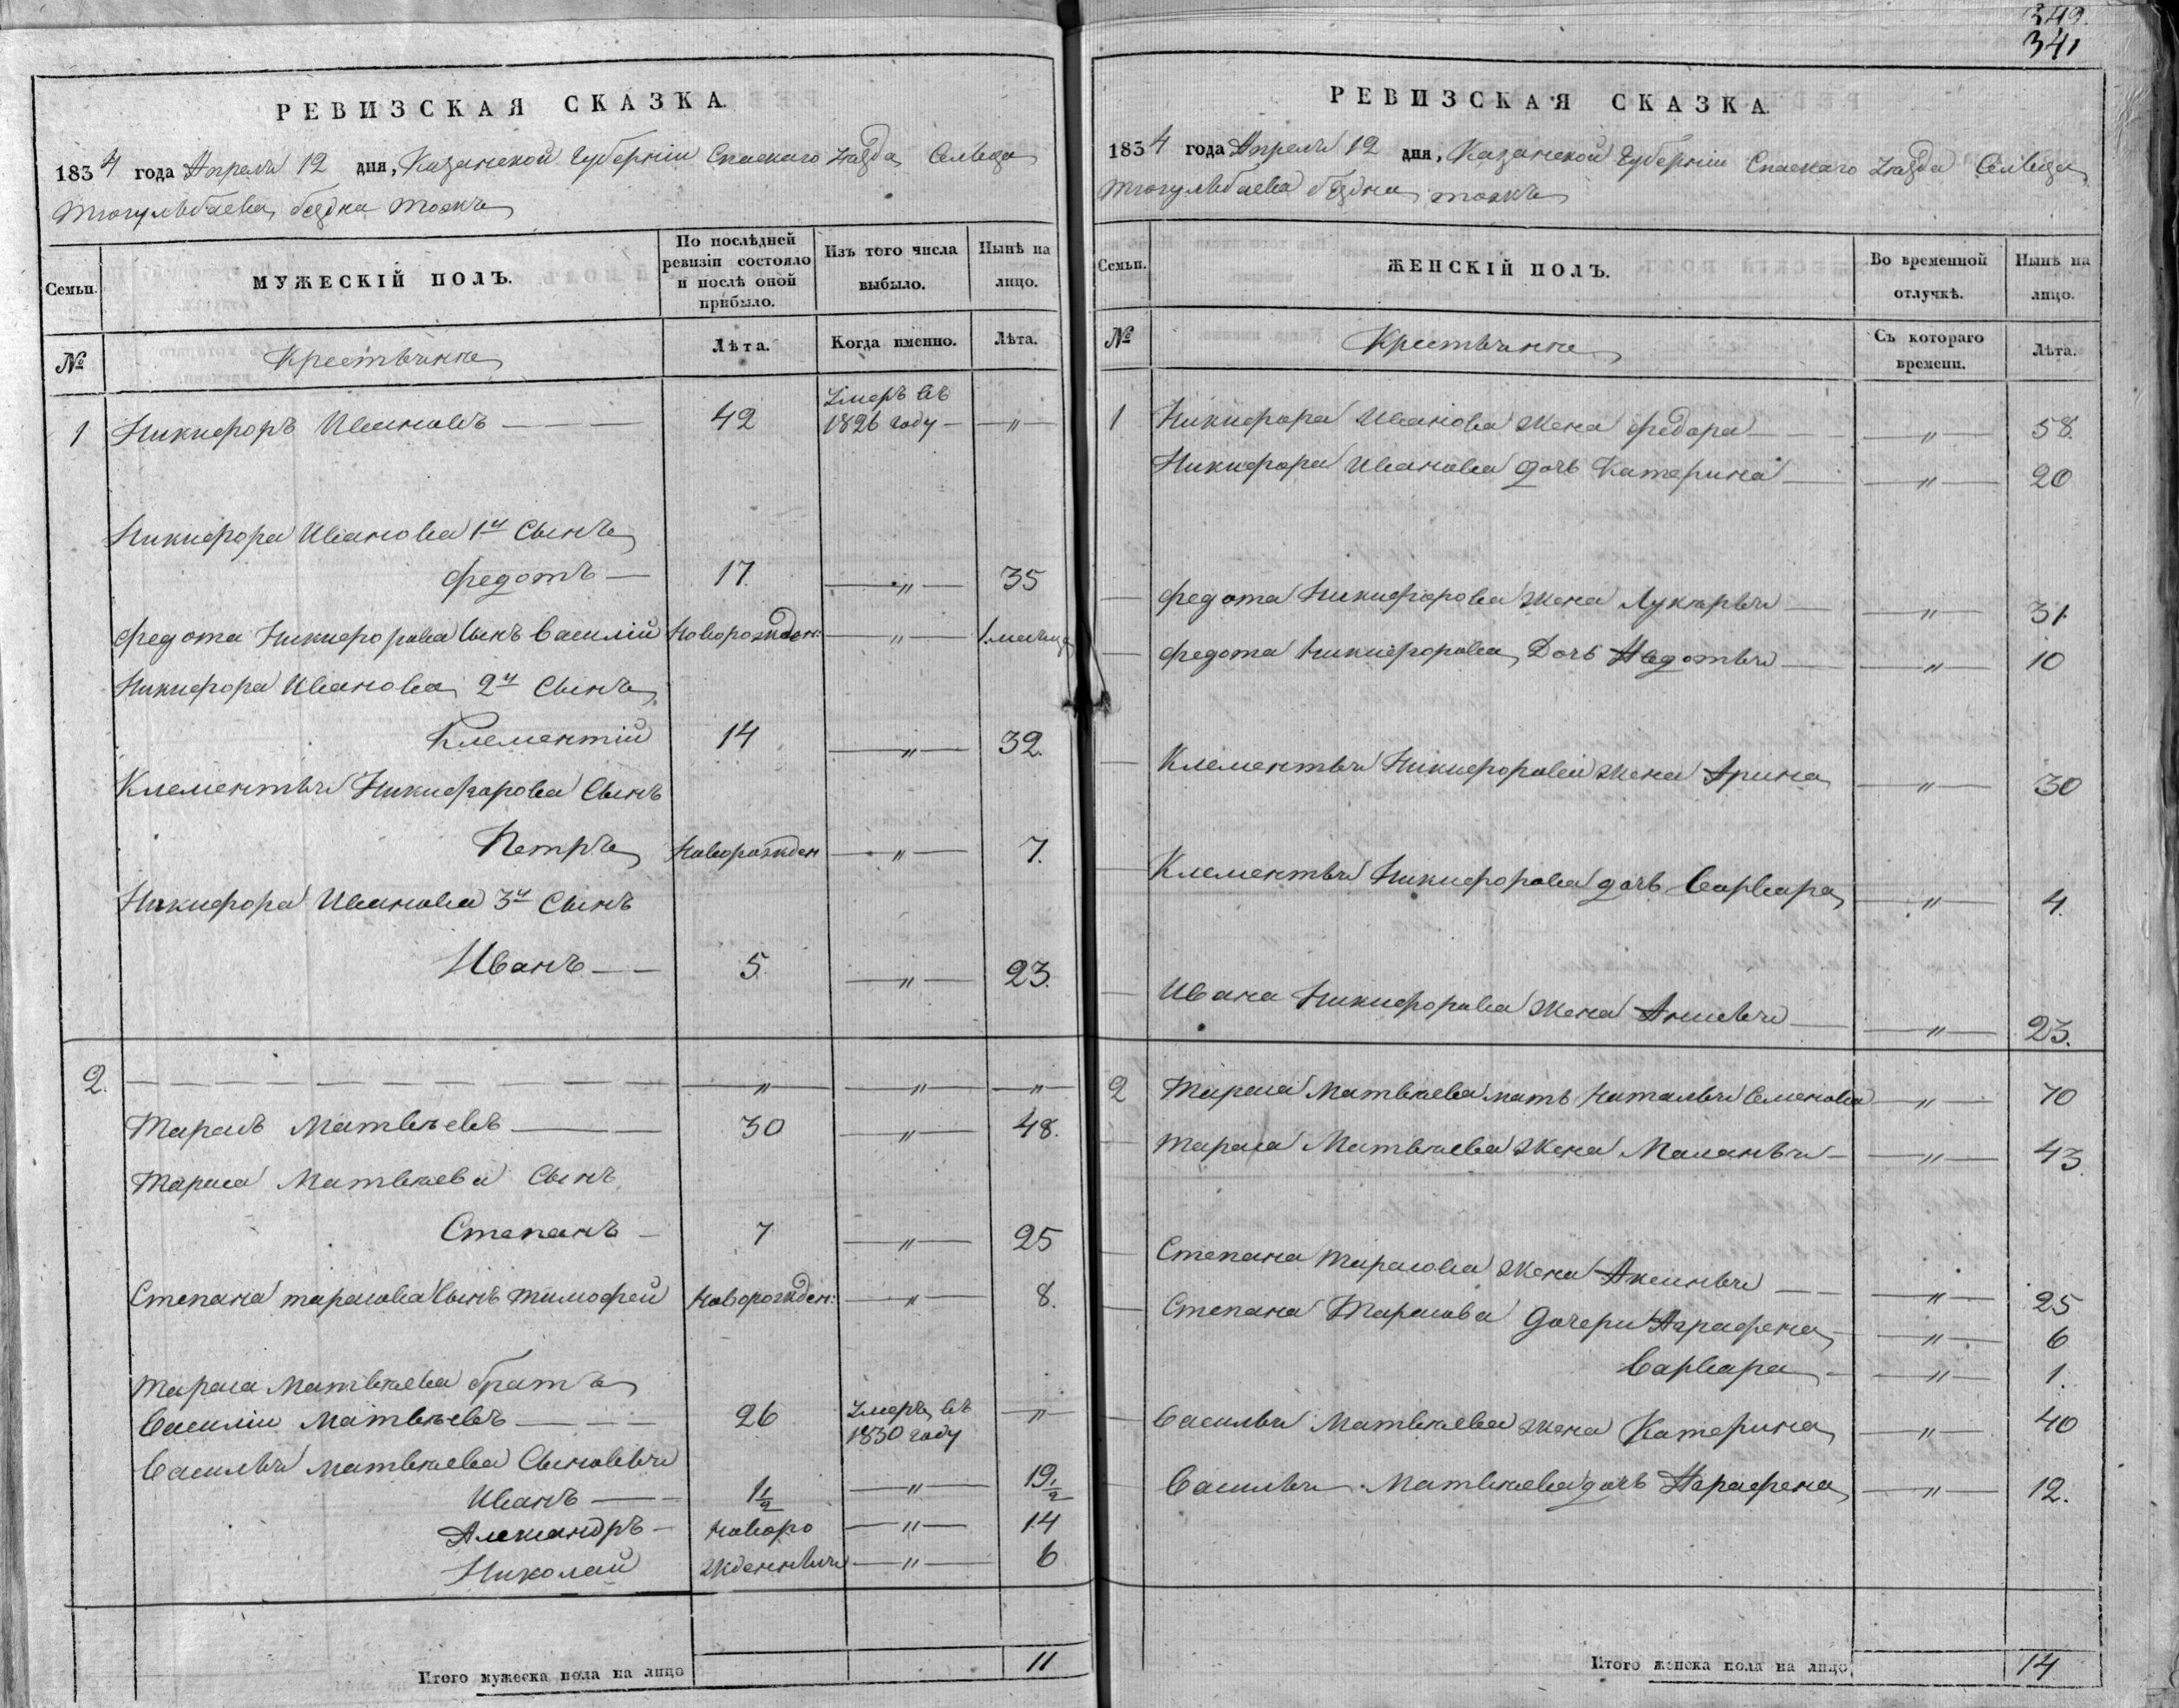 349.
341
РЕВИЗСКАЯ СКАЗКА.
1834 года Апреля 12 дня, Казанской Губерніи Спаскаго Уѣзда Сельца
Тюгульбаева бездна тожъ
Семьи.
МУЖЕСКІЙ ПОЛЪ.
По послѣдней ревизіи состояло и послѣ оной прибыло.
Изъ того числа выбыло.
Нынѣ на лицо.
№
Крестьянне
Лѣта.
Когда именно.
Лѣта.
1 Никифоръ Ивановъ — 42 Умеръ въ 1826 году — „
Никифора Иванова 1й Сынъ
Федотъ — 17. „ 35
Федота Никифорова Сынъ Василій Новорожден: „ 1 месяца
Никифора Иванова 2й Сынъ
Клементій 14 „ 32.
Клементья Никифорова Сынъ
Петръ Новорожден „ 7.
Никифора Иванова 3й Сынъ
Иванъ — 5. „ 23.
2. — „ „ „
Тарасъ Матвѣевъ — 30 „ 48.
Тараса Матвѣева Сынъ
Степанъ — 7 „ 25
Степана Тарасова Сынъ Тимофей Новорожден: „ 8.
Тараса Матвѣева братъ
Василіи Матвѣевъ — 26 Умеръ въ 1830 году „
Василья Матвѣева Сыновья
Иванъ — 1½ „ 19½
Александръ — Новоро „ 14
Николай жденныя „ 6
Итого мужеска пола на лицо 11
РЕВИЗСКАЯ СКАЗКА.
1834 года Апреля 12 дня, Казанской Губерніи Спаскаго Уѣзда Сельца
Тюгульбаева бездна тожъ
Семьи.
ЖЕНСКІЙ ПОЛЪ.
Во временной отлучкѣ.
Нынѣ на лицо.
№
Крестьянне
Съ котораго времени.
Лѣта.
1 Никифора Иванова Жена Федора — „ 58.
Никифора Иванова дочь Катерина — „ 20
Федота Никифорова Жена Лукерья — „ 31.
Федота Никифорова Дочь Авдотья — „ 10
Клементья Никифорова Жена Арина „ 30
Клементья Никифорова дочь Варвара „ 4.
Ивана Никифорова Жена Анисья — „ 23.
2 Тараса Матвѣева мать Наталья Семенова „ 70
Тараса Матвѣева Жена Маланья — „ 43.
Степана Тарасова Жена Аксинья — „ 25
Степана Тарасова дочери Аграфена „ 6
Варвара — „ 1.
Василья Матвѣева Жена Катерина „ 40
Василья Матвѣева дочь Аграфена „ 12.
Итого женска пола на лицо 14